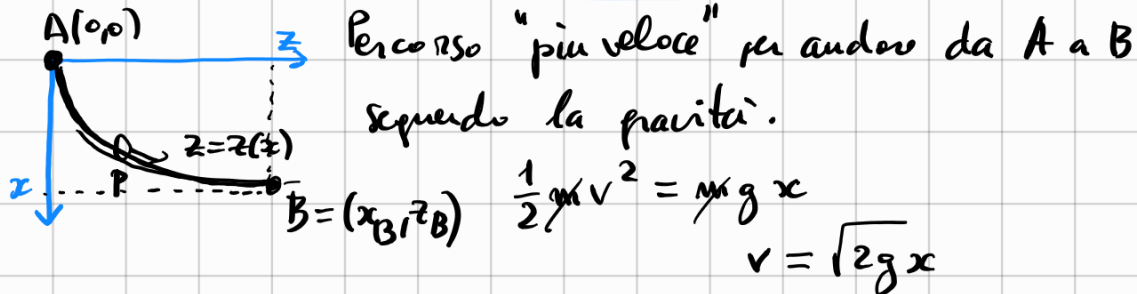 A(0,0)
z
Percorso "più veloce" per andare da A a B
seguendo la gravità.
z=z(x)
P
x
B=(x_B, z_B)
1/2 m v² = m g x
v = √2gx